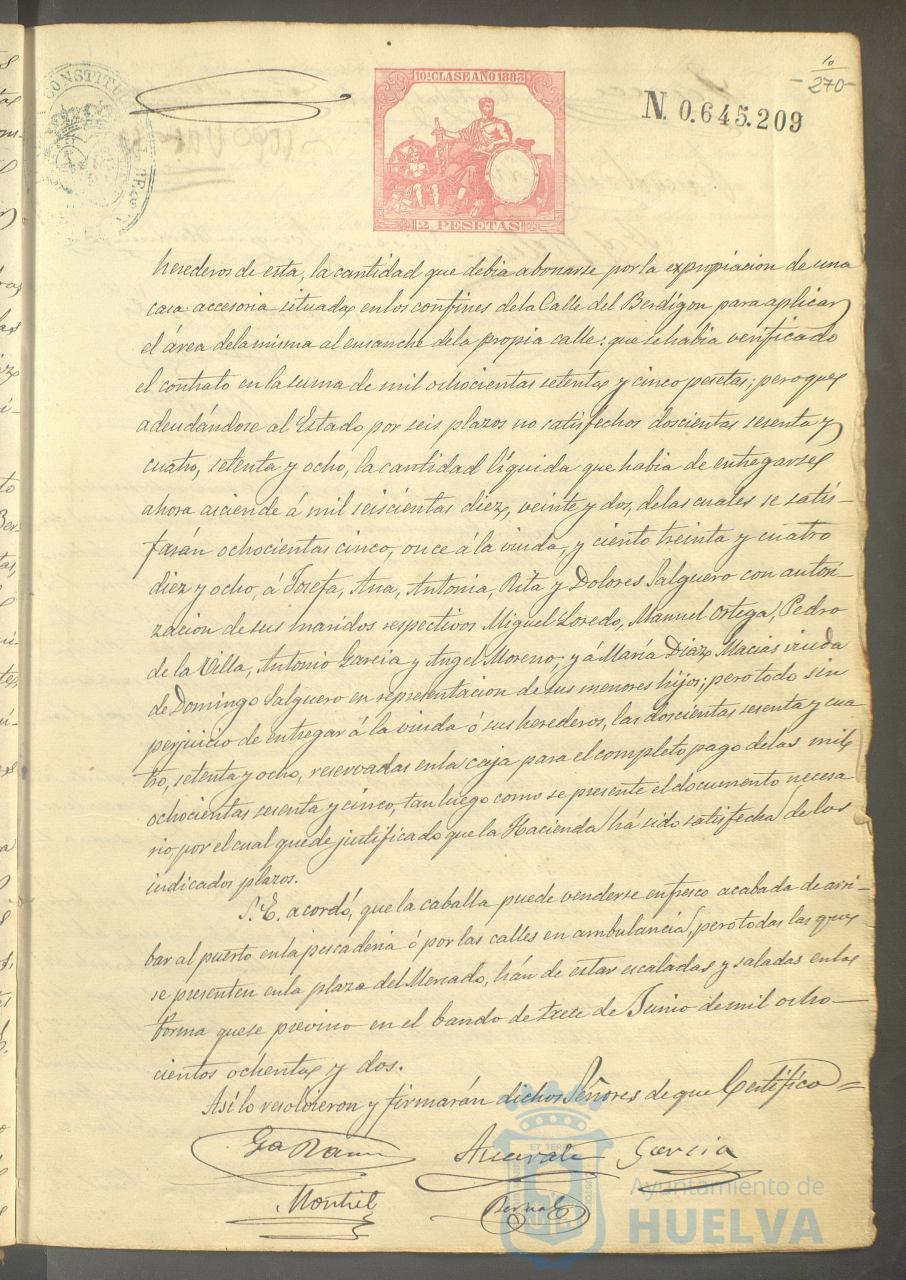 10
-270-
CONSTITU
10ª CLASE AÑO 1883
N. 0.645.209
2 PESETAS
herederos de esta, la cantidad que debia abonarse por la expropiacion de una
casa accesoria situada en los confines de la Calle del Berdigon para aplicar
el área de la misma al ensanche de la propia calle; que se habia verificado
el contrato en la suma de mil ochocientas setenta y cinco pesetas; pero que
adeudándose al Estado por seis plazos no satisfechos doscientas sesenta y
cuatro, setenta y ocho, la cantidad líquida que habia de entregarse
ahora asciende á mil seiscientas diez, veinte y dos, de las cuales se satis-
farán ochocientas cinco, once á la viuda, y ciento treinta y cuatro
diez y ocho, á Josefa, Ana, Antonia, Rita y Dolores Salguero con autori-
zacion de sus maridos respectivos Miguel Loredo, Manuel Ortega, Pedro
de la Villa, Antonio García y Angel Moreno, y á María Diaz Macias viuda
de Domingo Salguero en representacion de sus menores hijos; pero todo sin
perjuicio de entregar á la viuda ó sus herederos, las doscientas sesenta y cua
tro, setenta y ocho, reservadas en la caja para el completo pago de las mil
ochocientas sesenta y cinco, tan luego como se presente el documento necesa
rio, por el cual quede justificado que la Hacienda há sido satisfecha de los
indicados plazos.
S. E. acordó, que la caballa puede venderse en fresco acabada de arri-
bar al puerto en la pescaderia ó por las calles en ambulancia, pero todas las que
se presenten en la plaza del Mercado, hán de estar escaladas y saladas en la
forma que se previno en el bando de trece de Junio de mil ocho-
cientos ochenta y dos.
Así lo resolvieron y firmarán dichos Señores de que Certifico=
García
Montiel
Bernal
Ayuntamiento de
HUELVA